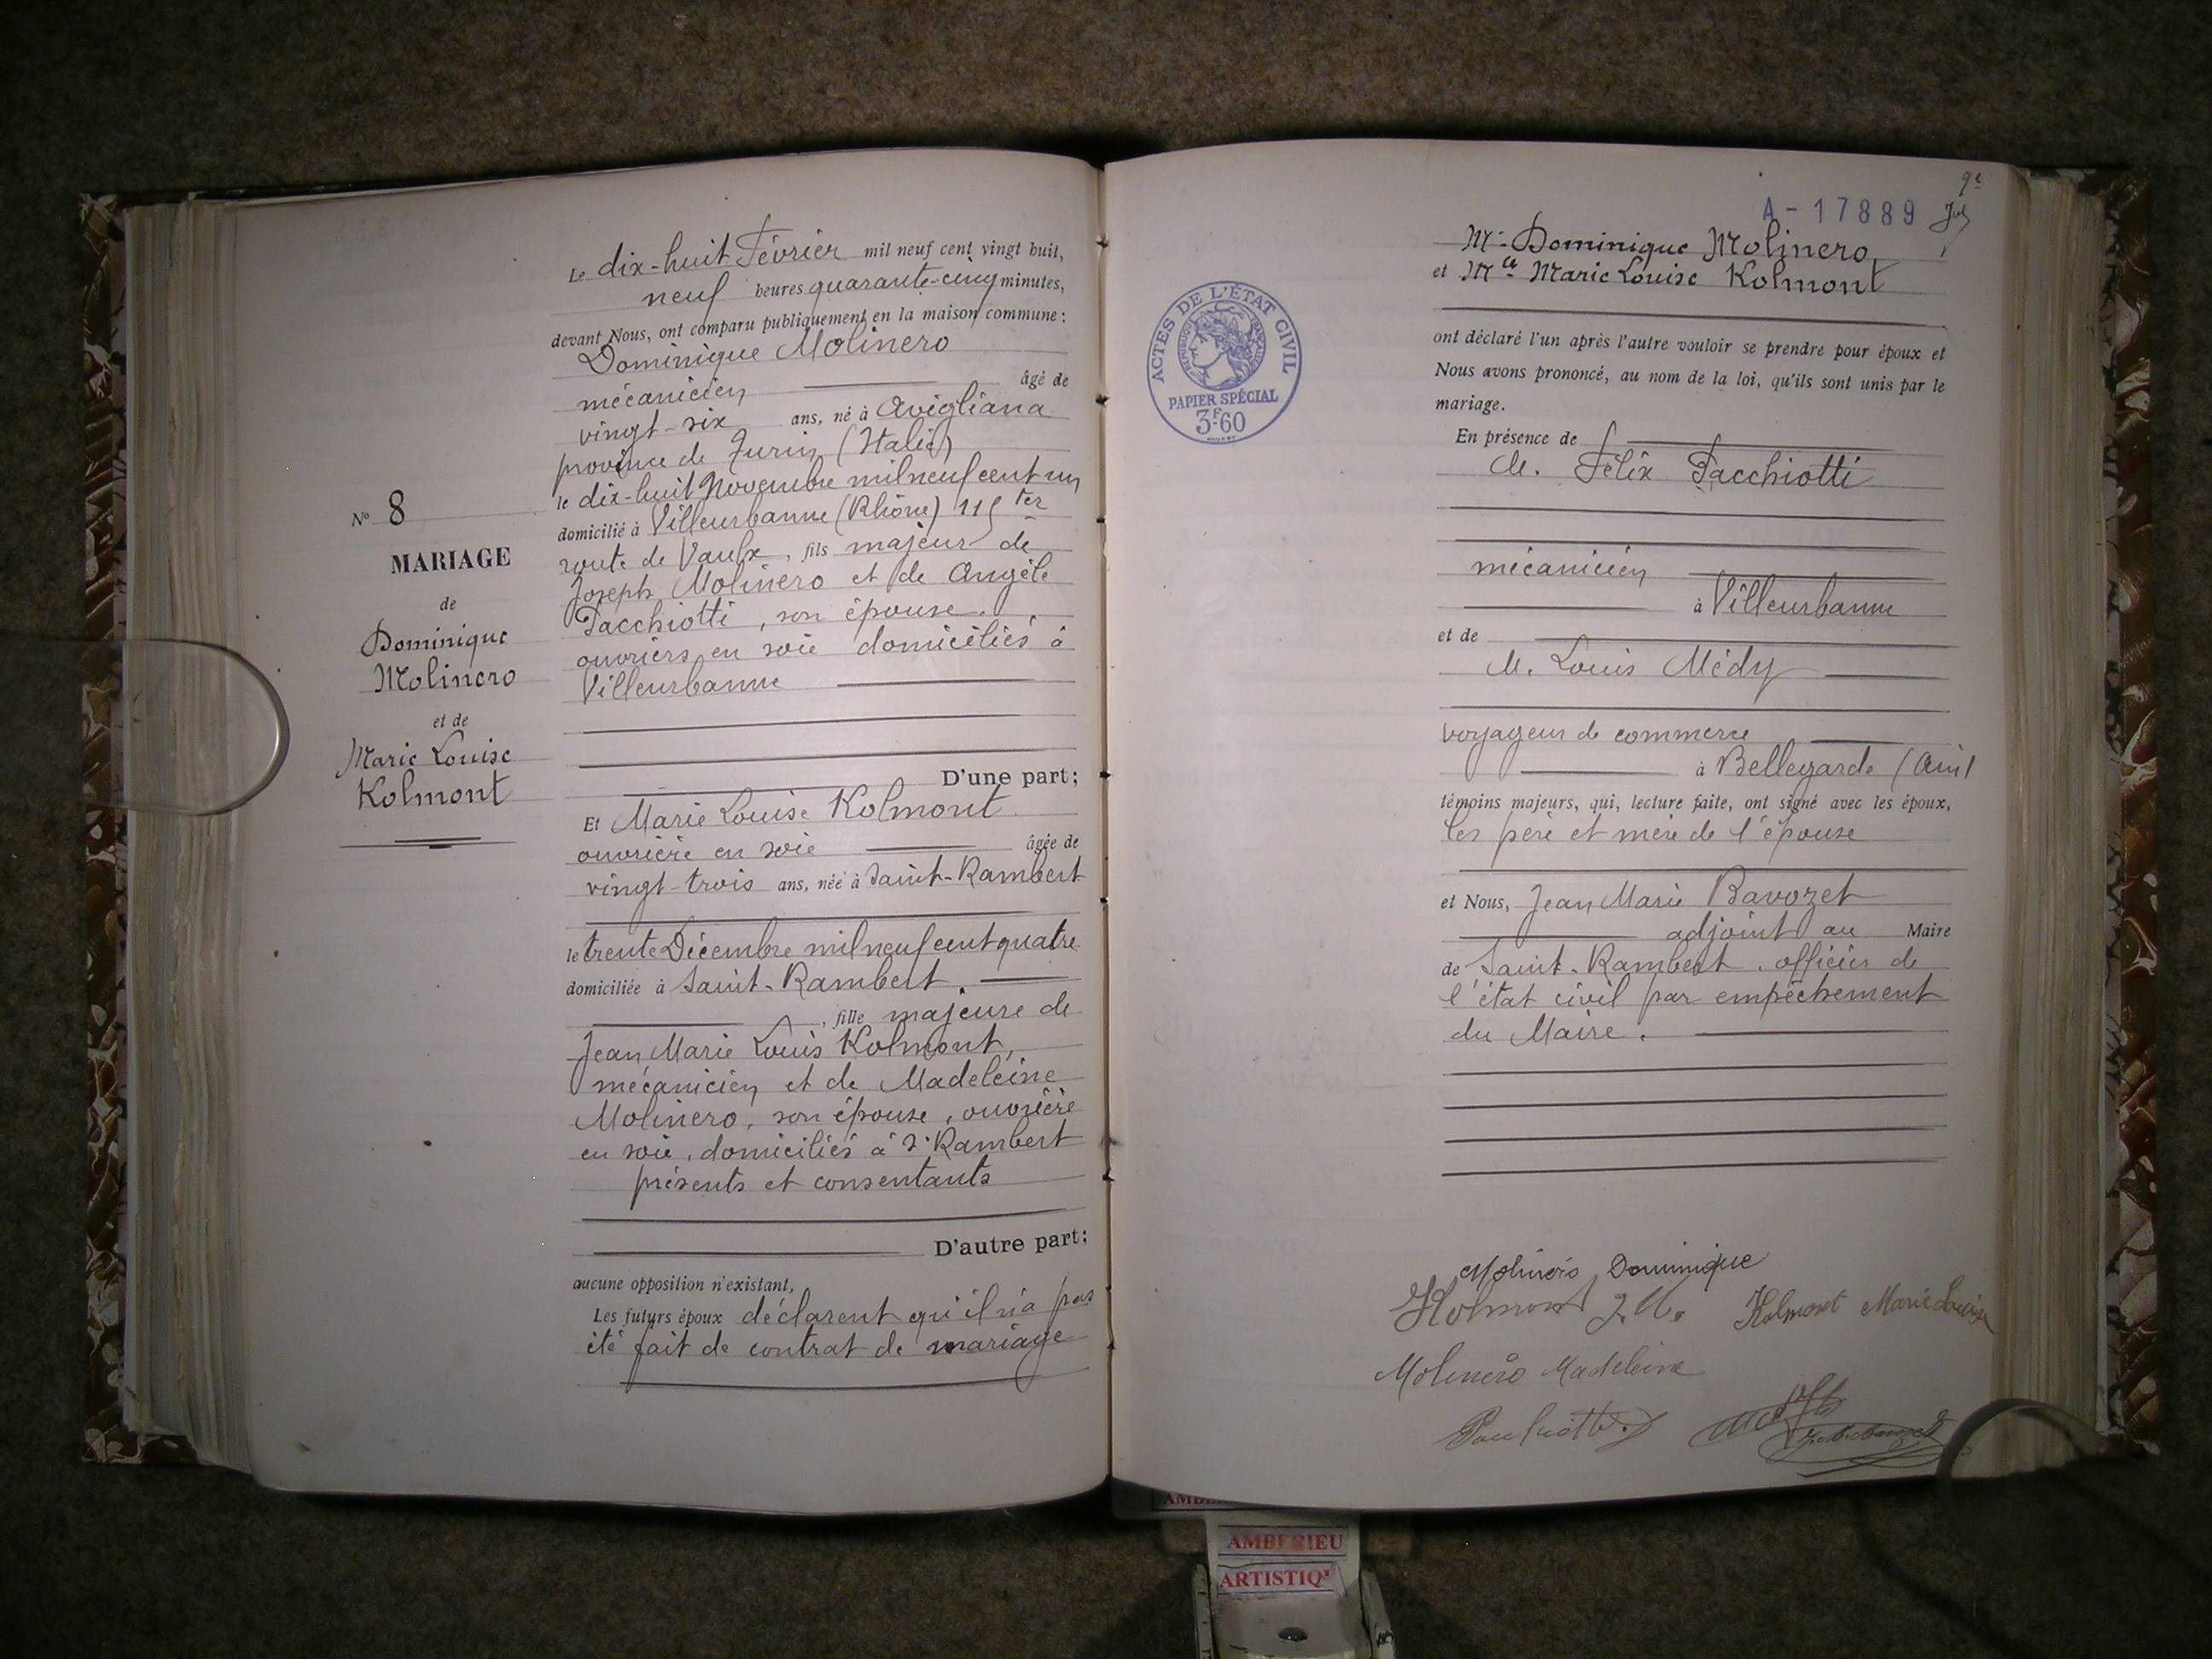 Le dix-huit Février mil neuf cent vingt huit,
neuf heures quarante-cinq minutes,
devant Nous, ont comparu publiquement en la maison commune :
Dominique Molinero
mécanicien âgé de
vingt-six ans, né à Avigliana
province de Turin (Italie)
le dix-huit Novembre mil neuf cent un
domicilié à Villeurbanne (Rhône) 115 ter
route de Vaulx, fils majeur de
Joseph Molinero et de Angèle
Pacchiotti, son épouse.
ouvriers en soie domiciliés à
Villeurbanne
D'une part;
Et Marie Louise Kolmont
ouvrière en soie âgée de
vingt-trois ans, née à Saint-Rambert
le trente Décembre mil neuf cent quatre
domiciliée à Saint-Rambert.
, fille majeure de
Jean Marie Louis Kolmont,
mécanicien et de Madeleine
Molinero, son épouse, ouvrière
en soie, domiciliés à St Rambert
présents et consentants
D'autre part;
aucune opposition n'existant,
Les futurs époux déclarent qu'il n'a pas
été fait de contrat de mariage
N° 8
MARIAGE
de
Dominique
Molinero
et de
Marie Louise
Kolmont
9e
A-17889
ACTES DE L'ÉTAT CIVIL
RÉPUBLIQUE FRANÇAISE
PAPIER SPÉCIAL
3F60
Mr Dominique Molinero
et Mlle Marie Louise Kolmont
ont déclaré l'un après l'autre vouloir se prendre pour époux et
Nous avons prononcé, au nom de la loi, qu'ils sont unis par le
mariage.
En présence de
M. Félix Pacchiotti
mécanicien
à Villeurbanne
et de
M. Louis Médy
voyageur de commerce
à Bellegarde (Ain)
témoins majeurs, qui, lecture faite, ont signé avec les époux,
les père et mère de l'épouse
et Nous, Jean Marie Ravozet
adjoint au Maire
de Saint-Rambert, officier de
l'état civil par empêchement
du Maire.
Molinero Dominique
Kolmont J.M. Kolmont Marie Louise
Molinero Madeleine
AMBERIEU
ARTISTIQ